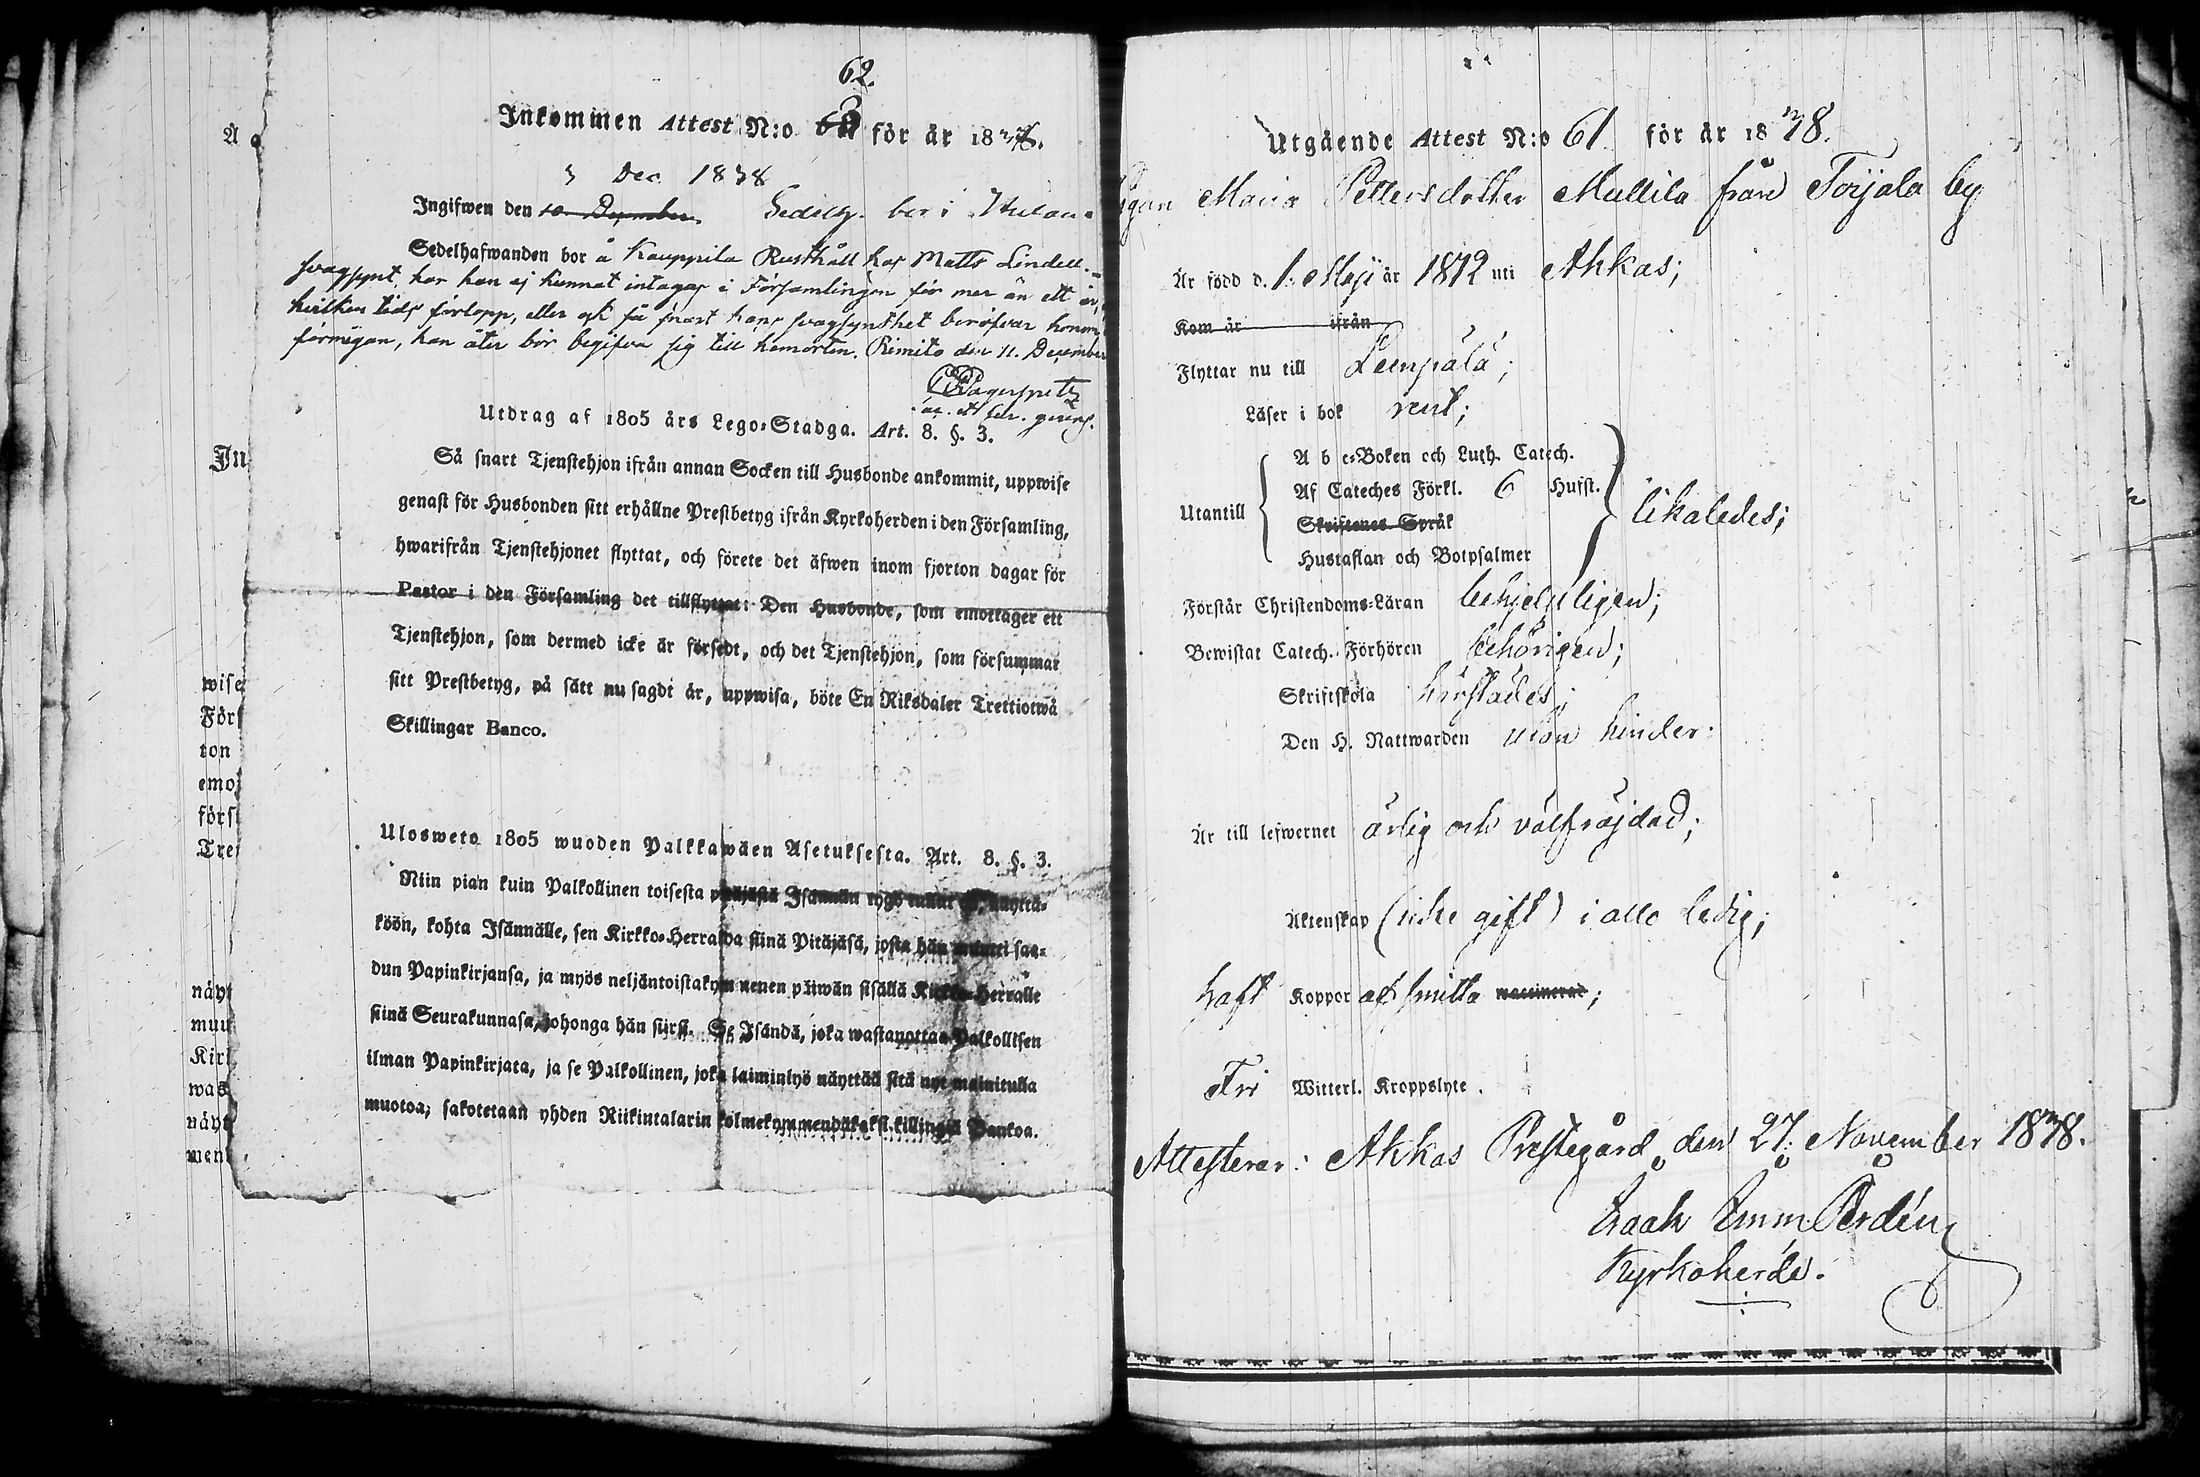 62.
Inkommen Attest N:o för år 18
Dec 1838
Ingifwen den 10 December Sedelh. bor i
Sedelhafwanden bor å Kauppila Rusthåll hos Matts Lindell.
svagsynt, har han ej kunnat intagas i Församlingen för mer än ett år,
hvilken tids förlopp, eller ock så snart hans svagsynthet beröfvar honom
förmågan, han åter bör begifva sig till hemorten. Rimito den 11. December
Utdrag af 1805 års Lego-Stadga. Art. 8. §. 3.
Så snart Tjenstehjon ifrån annan Socken till Husbonde ankommit, uppwise
genast för Husbonden sitt erhållne Prestbetyg ifrån Kyrkoherden i den Församling,
hwarifrån Tjenstehjonet flyttat, och förete det äfwen inom fjorton dagar för
Pastor i den Församling det tillflyttat: Den Husbonde, som emottager ett
Tjenstehjon, som dermed icke är försedt, och det Tjenstehjon, som försummar
sitt Prestbetyg, på sätt nu sagdt är, uppwisa, böte En Riksdaler Trettiotwå
Skillingar Banco.
Ulosweto 1805 wuoden Palkkawäen Asetuksesta. Art. 8. §. 3.
Niin pian kuin Palkollinen toisesta pitäjästä Isännän tygö tullut on, näyttä-
köön, kohta Isännälle, sen Kirkko-Herralda siinä Pitäjäsä, josta hän muutti saa-
dun Papinkirjansa, ja myös neljäntoistakymmenen päiwän sisällä Kirkko-Herralle
siinä Seurakunnasa, johonga hän siirsi. Se Isändä, joka wastanottaa Palkollisen
ilman Papinkirjata, ja se Palkollinen, joka laiminlyö näyttää sitä nyt mainitulla
muotoa, sakotetaan yhden Riikintalarin kolmekymmendäkaksi killingiä Bankoa.
A
In
wise
För
ton
emot
förs
Tre
näyt
muu
Kir
was
näyt
men
Utgående Attest N:o 61 för år 1838.
Pigan Maria Pettersdotter Mullila från Toijala by
Är född d. 1. Maji år 1812 uti Akkas;
Kom år ifrån
Flyttar nu till Lempälä;
Läser i bok rent;
A b c-Boken och Luth. Catech.
Af Cateches Förkl. 6 Hufst.
Utantill likaledes;
Skriftenes Språk
Hustaflan och Botpsalmer
Förstår Christendoms-Läran behjelpligen;
Bewistat Catech. Förhören behörigen;
Skriftskola
Den H. Nattwarden utan hinder.
Är till lefwernet ärlig och välfräjdad;
Äktenskap (icke gift) i allo ledig;
haft Koppor af smitta waccinerad;
Fri Witterl. Kroppslyte.
Attesterar: Akkas Prestegård den 27. November 1838.
Isaak Emm. Perdén
Kyrkoherde.